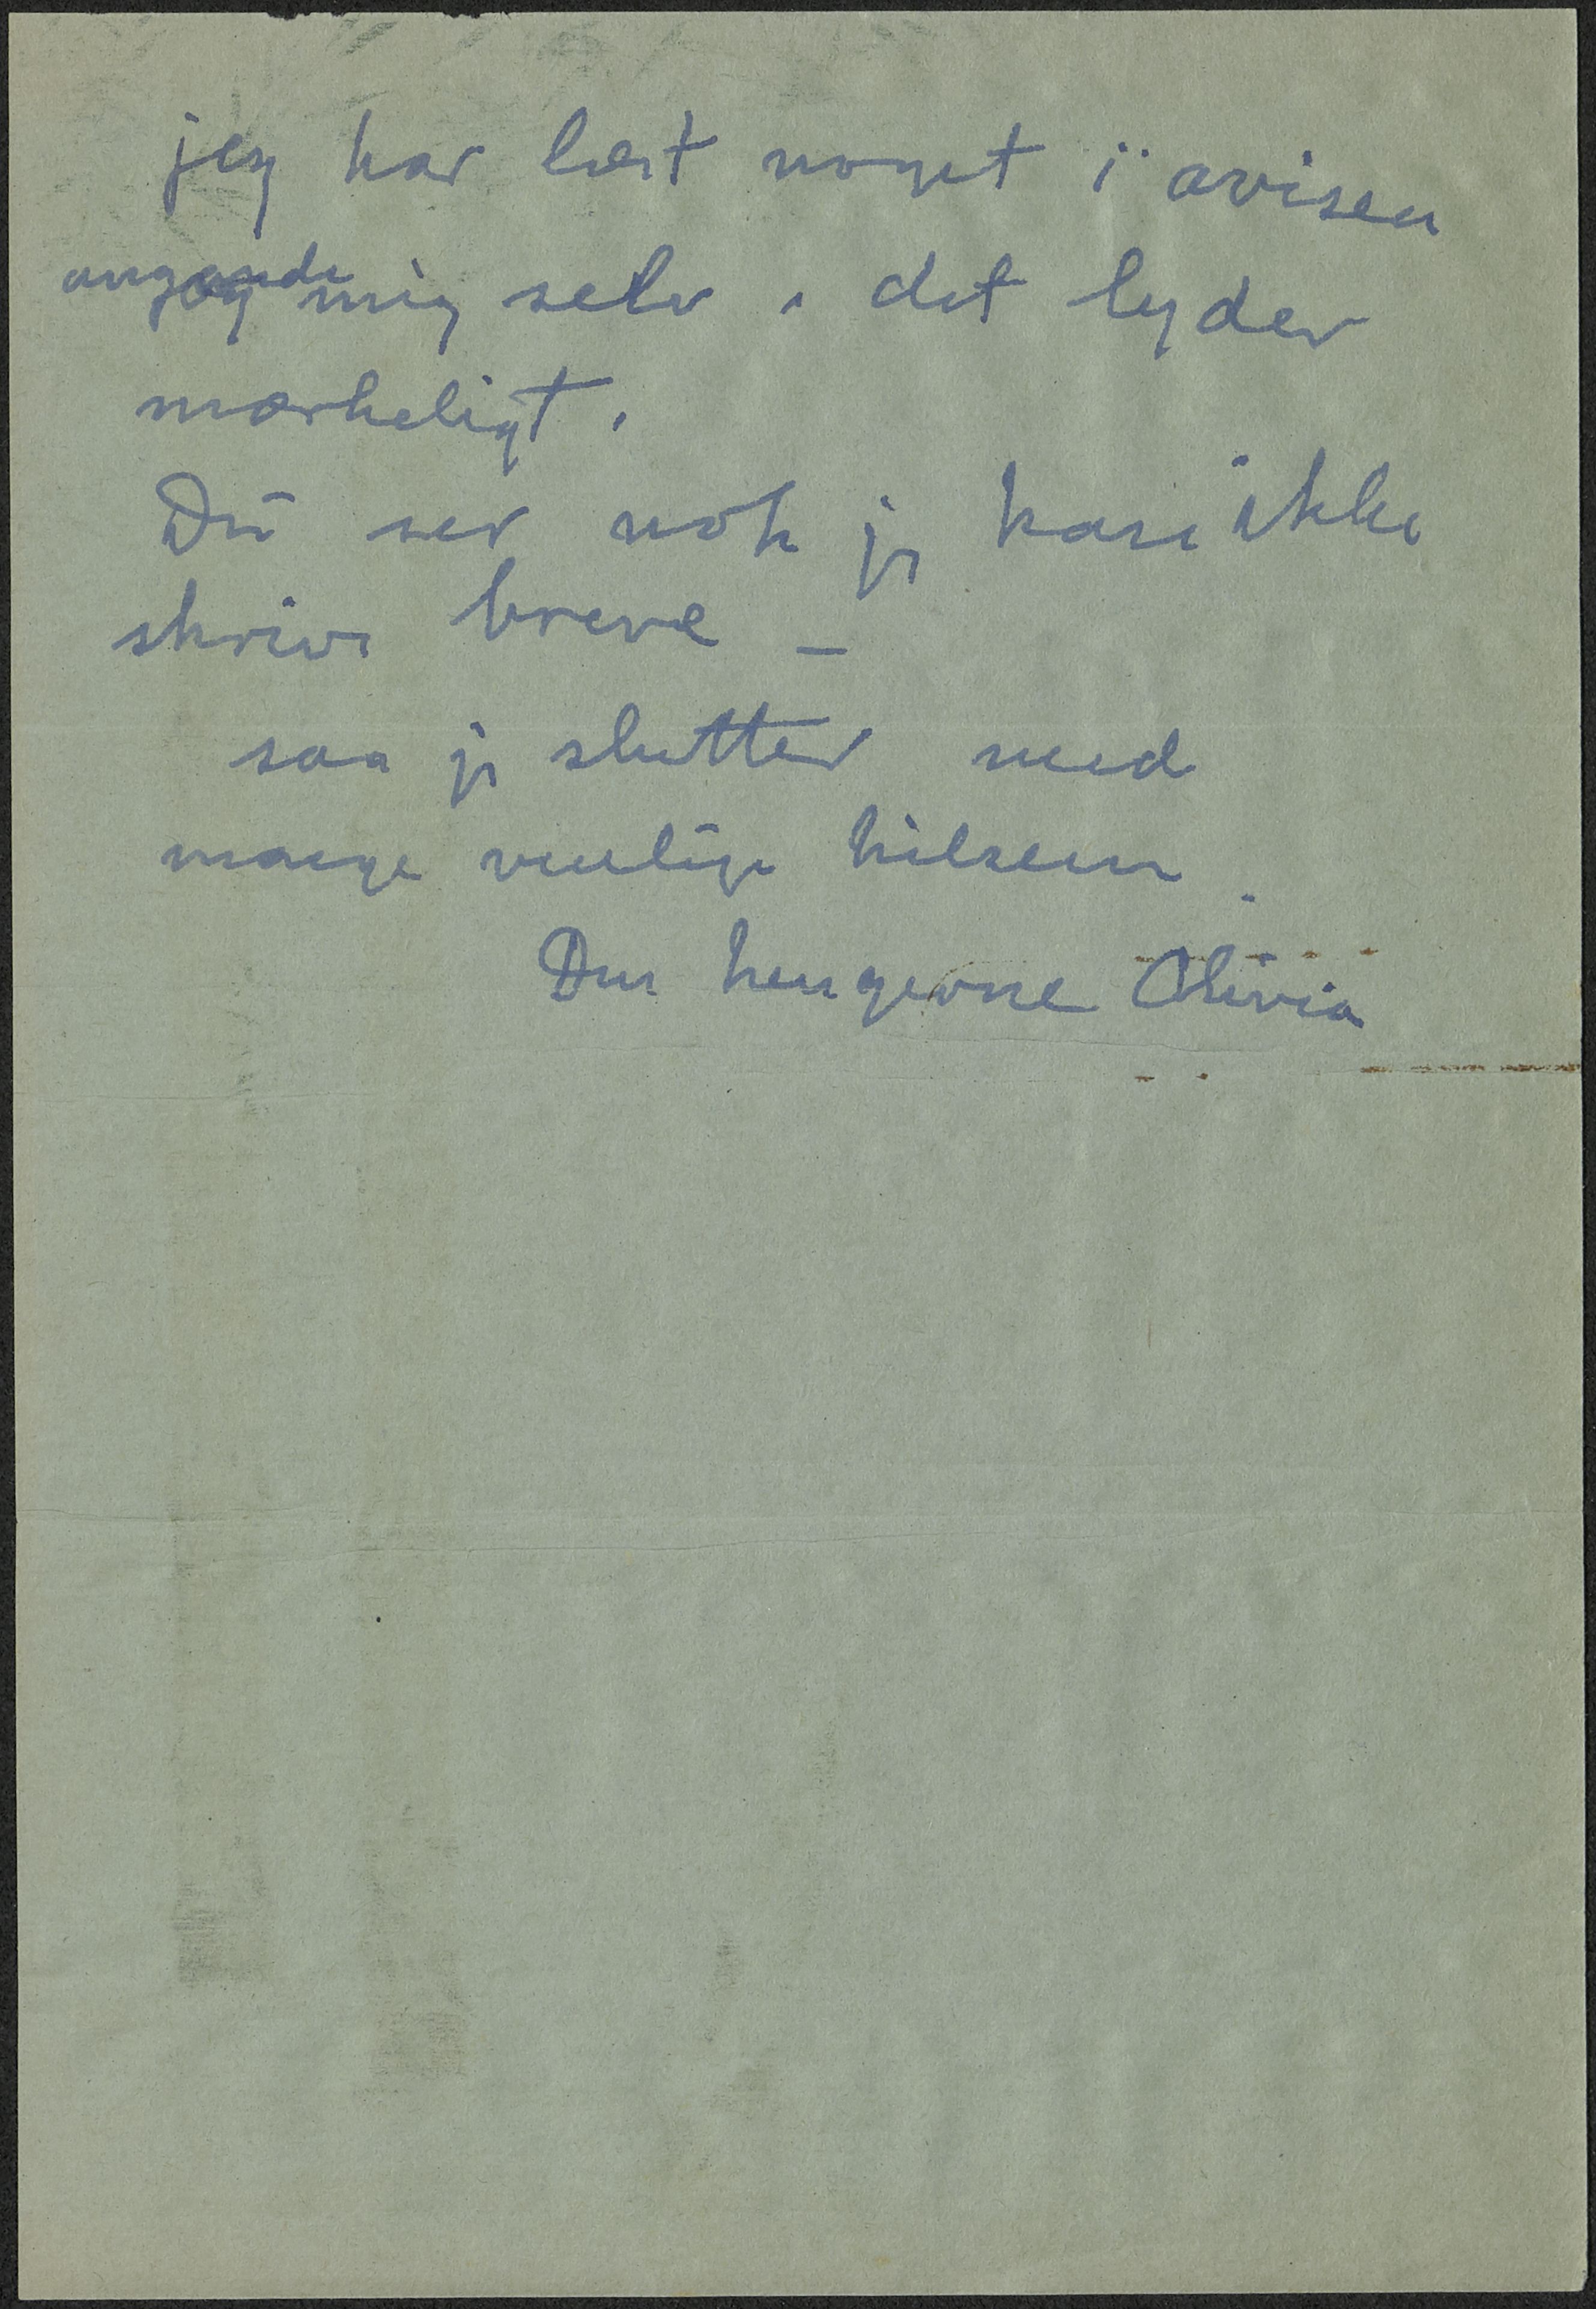 jeg har læst noget i avisen
angaaende mig selv, det lyder
mærkeligt.
Du ser nok jg kan ikke
skrive breve –
saa jg slutter med
mange venlige hilsener.
Din hengivne Olivia